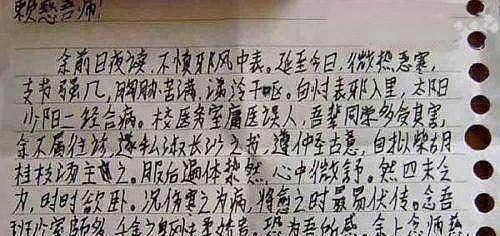 慈吾师!
余前日夜读,不慎邪风中表。延至今日,微热恶寒,
支节强几,胸胁苦满,满泠干呕。自忖表邪入里,太阳
少阳二经合病。校医务室庸医误人,吾辈同学多受其害,
余不屑往诊,遂私淑长沙之书,遵仲圣古意,自拟柴胡
桂枝汤主之。服后遍体漐然,心中微舒。然四末乏
力,时时欲卧。况伤寒之为病,将愈之时最易伏传。念吾
班公室